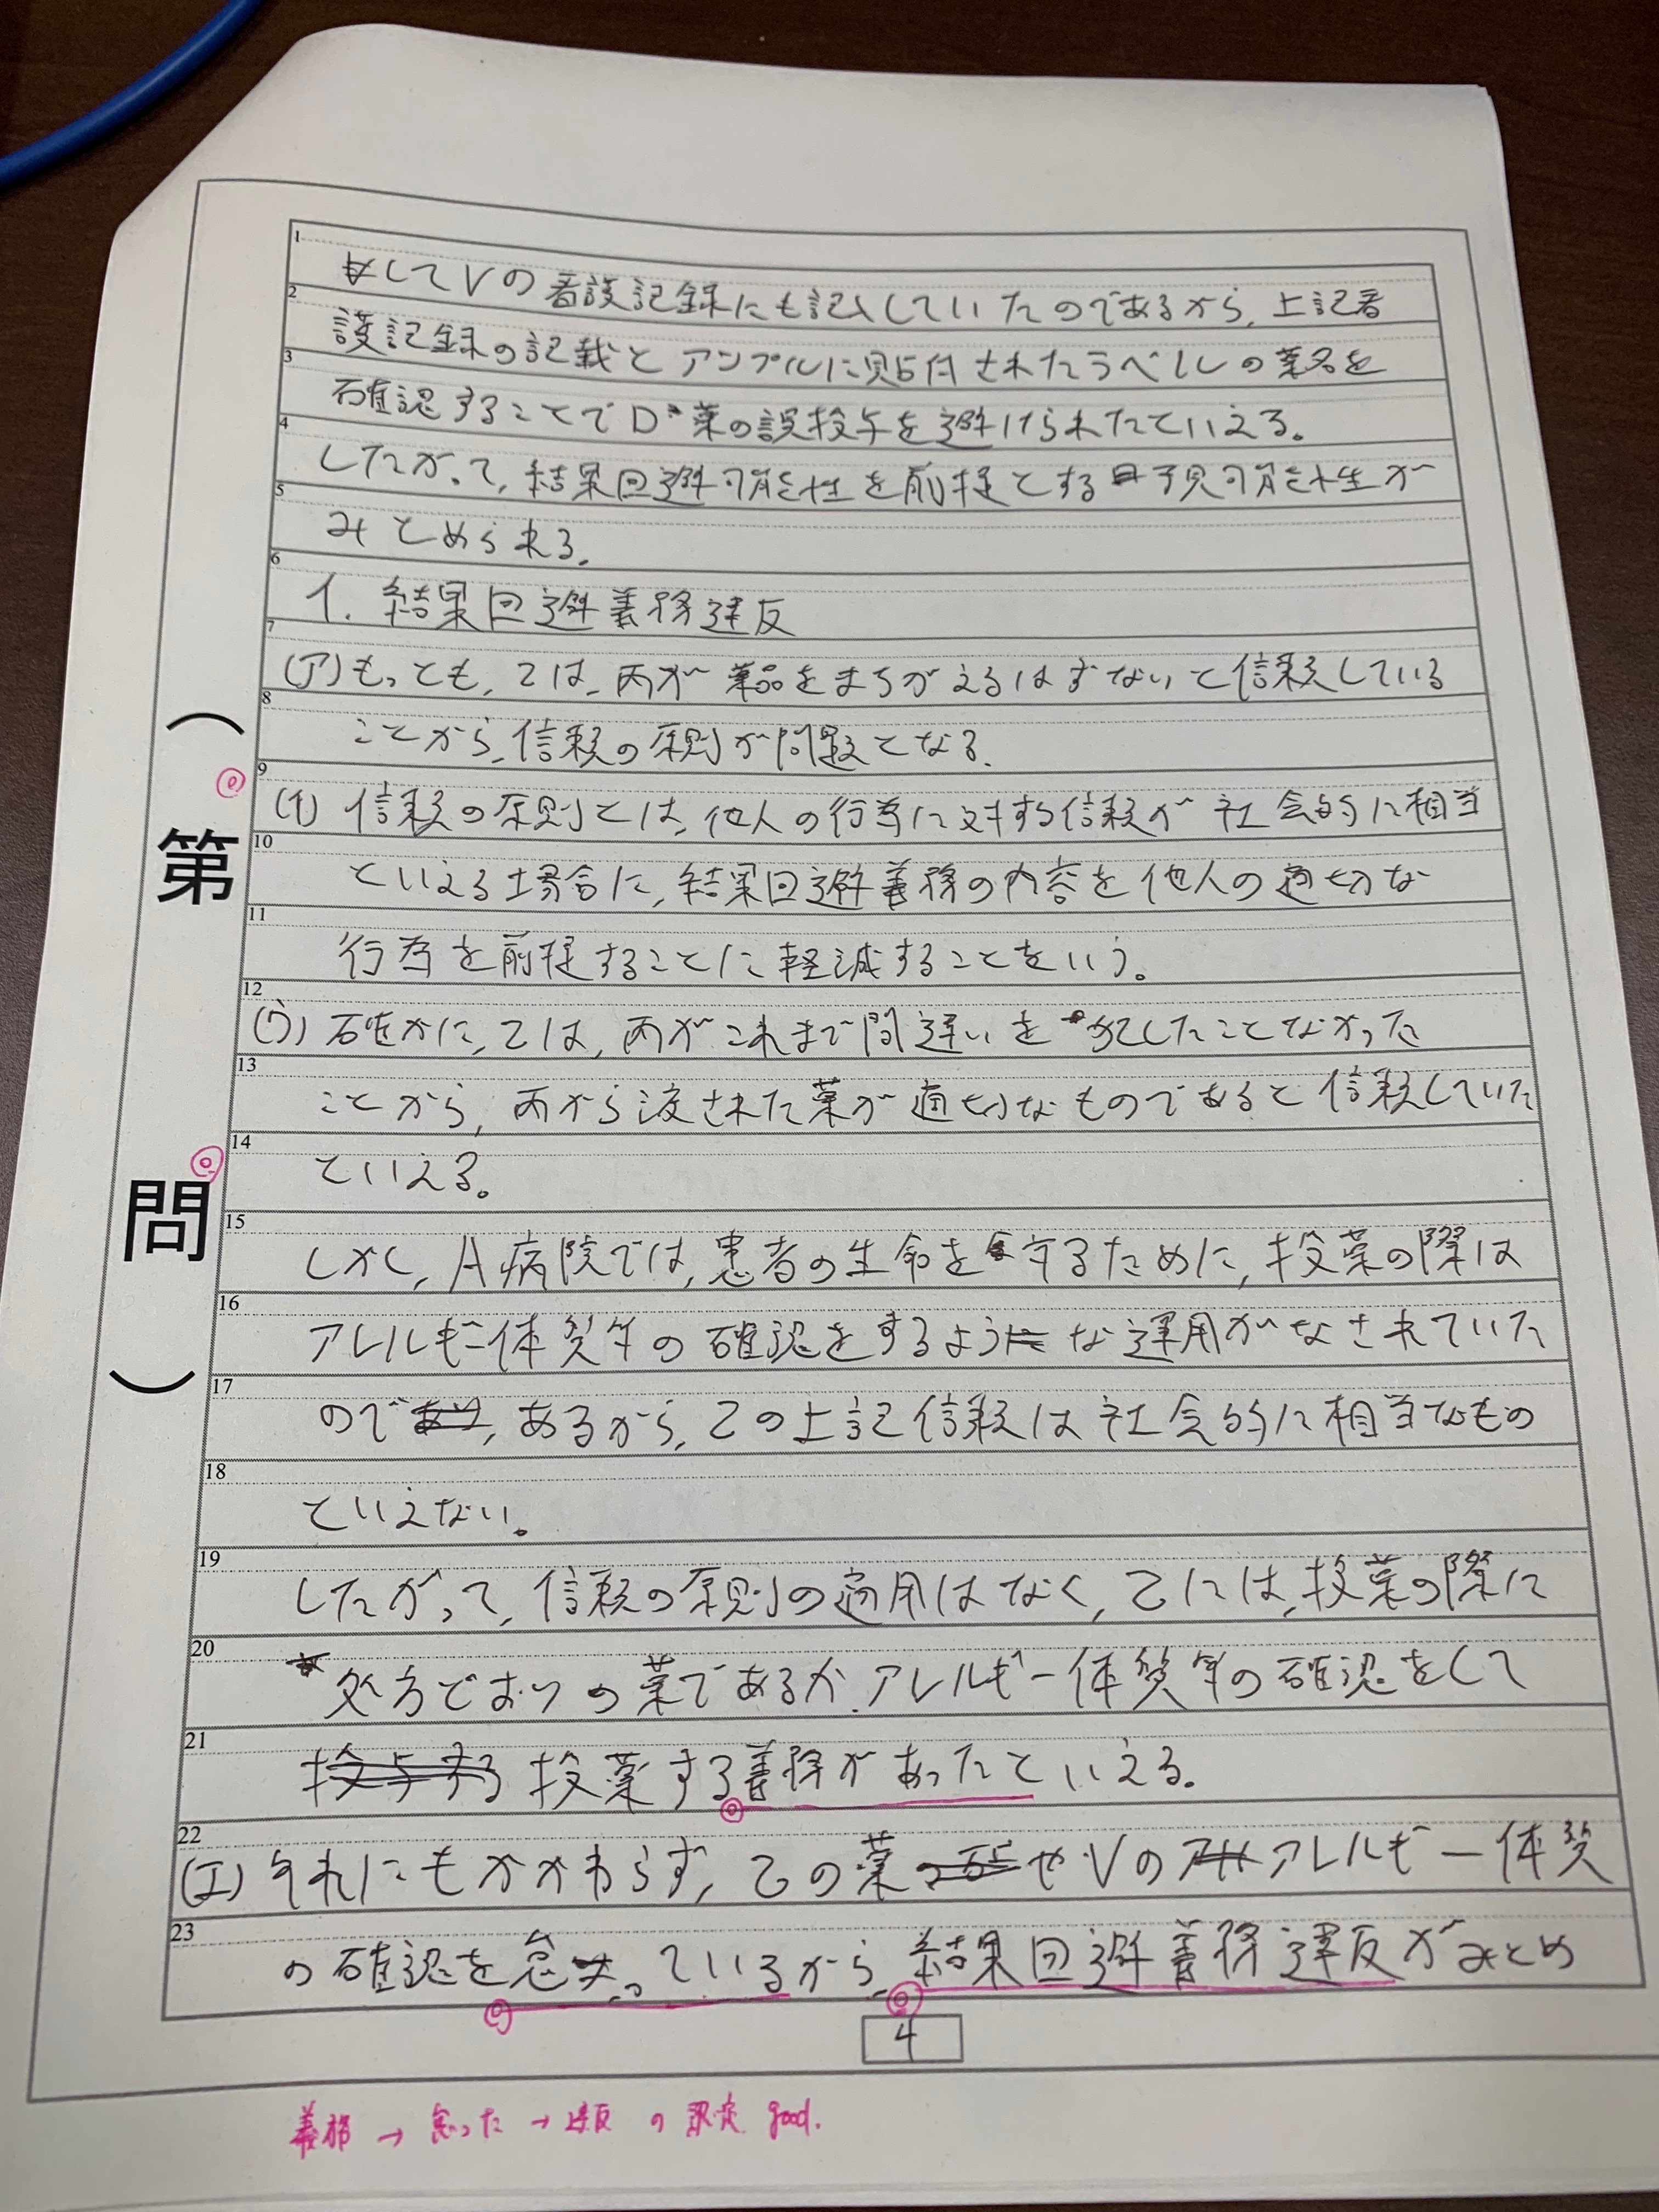 してVの看護記録にも記入していたのであるから、上記看
護記録の記載とアンプルに貼付されたラベルの薬名を
確認することでD薬の誤投与を避けられたといえる。
したがって、結果回避可能性を前提とする予見可能性が
みとめられる。
イ. 結果回避義務違反
(ア) もっとも、乙は、丙が薬品をまちがえるはずないと信頼している
ことから、信頼の原則が問題となる。
(イ) 信頼の原則とは、他人の行為に対する信頼が社会的に相当
といえる場合に、結果回避義務の内容を他人の適切な
行為を前提することに軽減することをいう。
(ウ) 確かに、乙は、丙がこれまで間違いを犯したことなかった
ことから、丙から渡された薬が適切なものであると信頼していた
といえる。
しかし、A病院では、患者の生命を守るために、投薬の際は
アレルギー体質等の確認をするような運用がなされていた
のであるから、乙の上記信頼は社会的に相当なもの
といえない。
したがって、信頼の原則の適用はなく、乙には、投薬の際に
処方どおりの薬であるか、アレルギー体質等の確認をして
投薬する義務があったといえる。
(エ) それにもかかわらず、乙の薬やVのアレルギー体質
の確認を怠っているから、結果回避義務違反がみとめ
4
(第 問)
義務 → 怠った → 違反 の 認定 good.